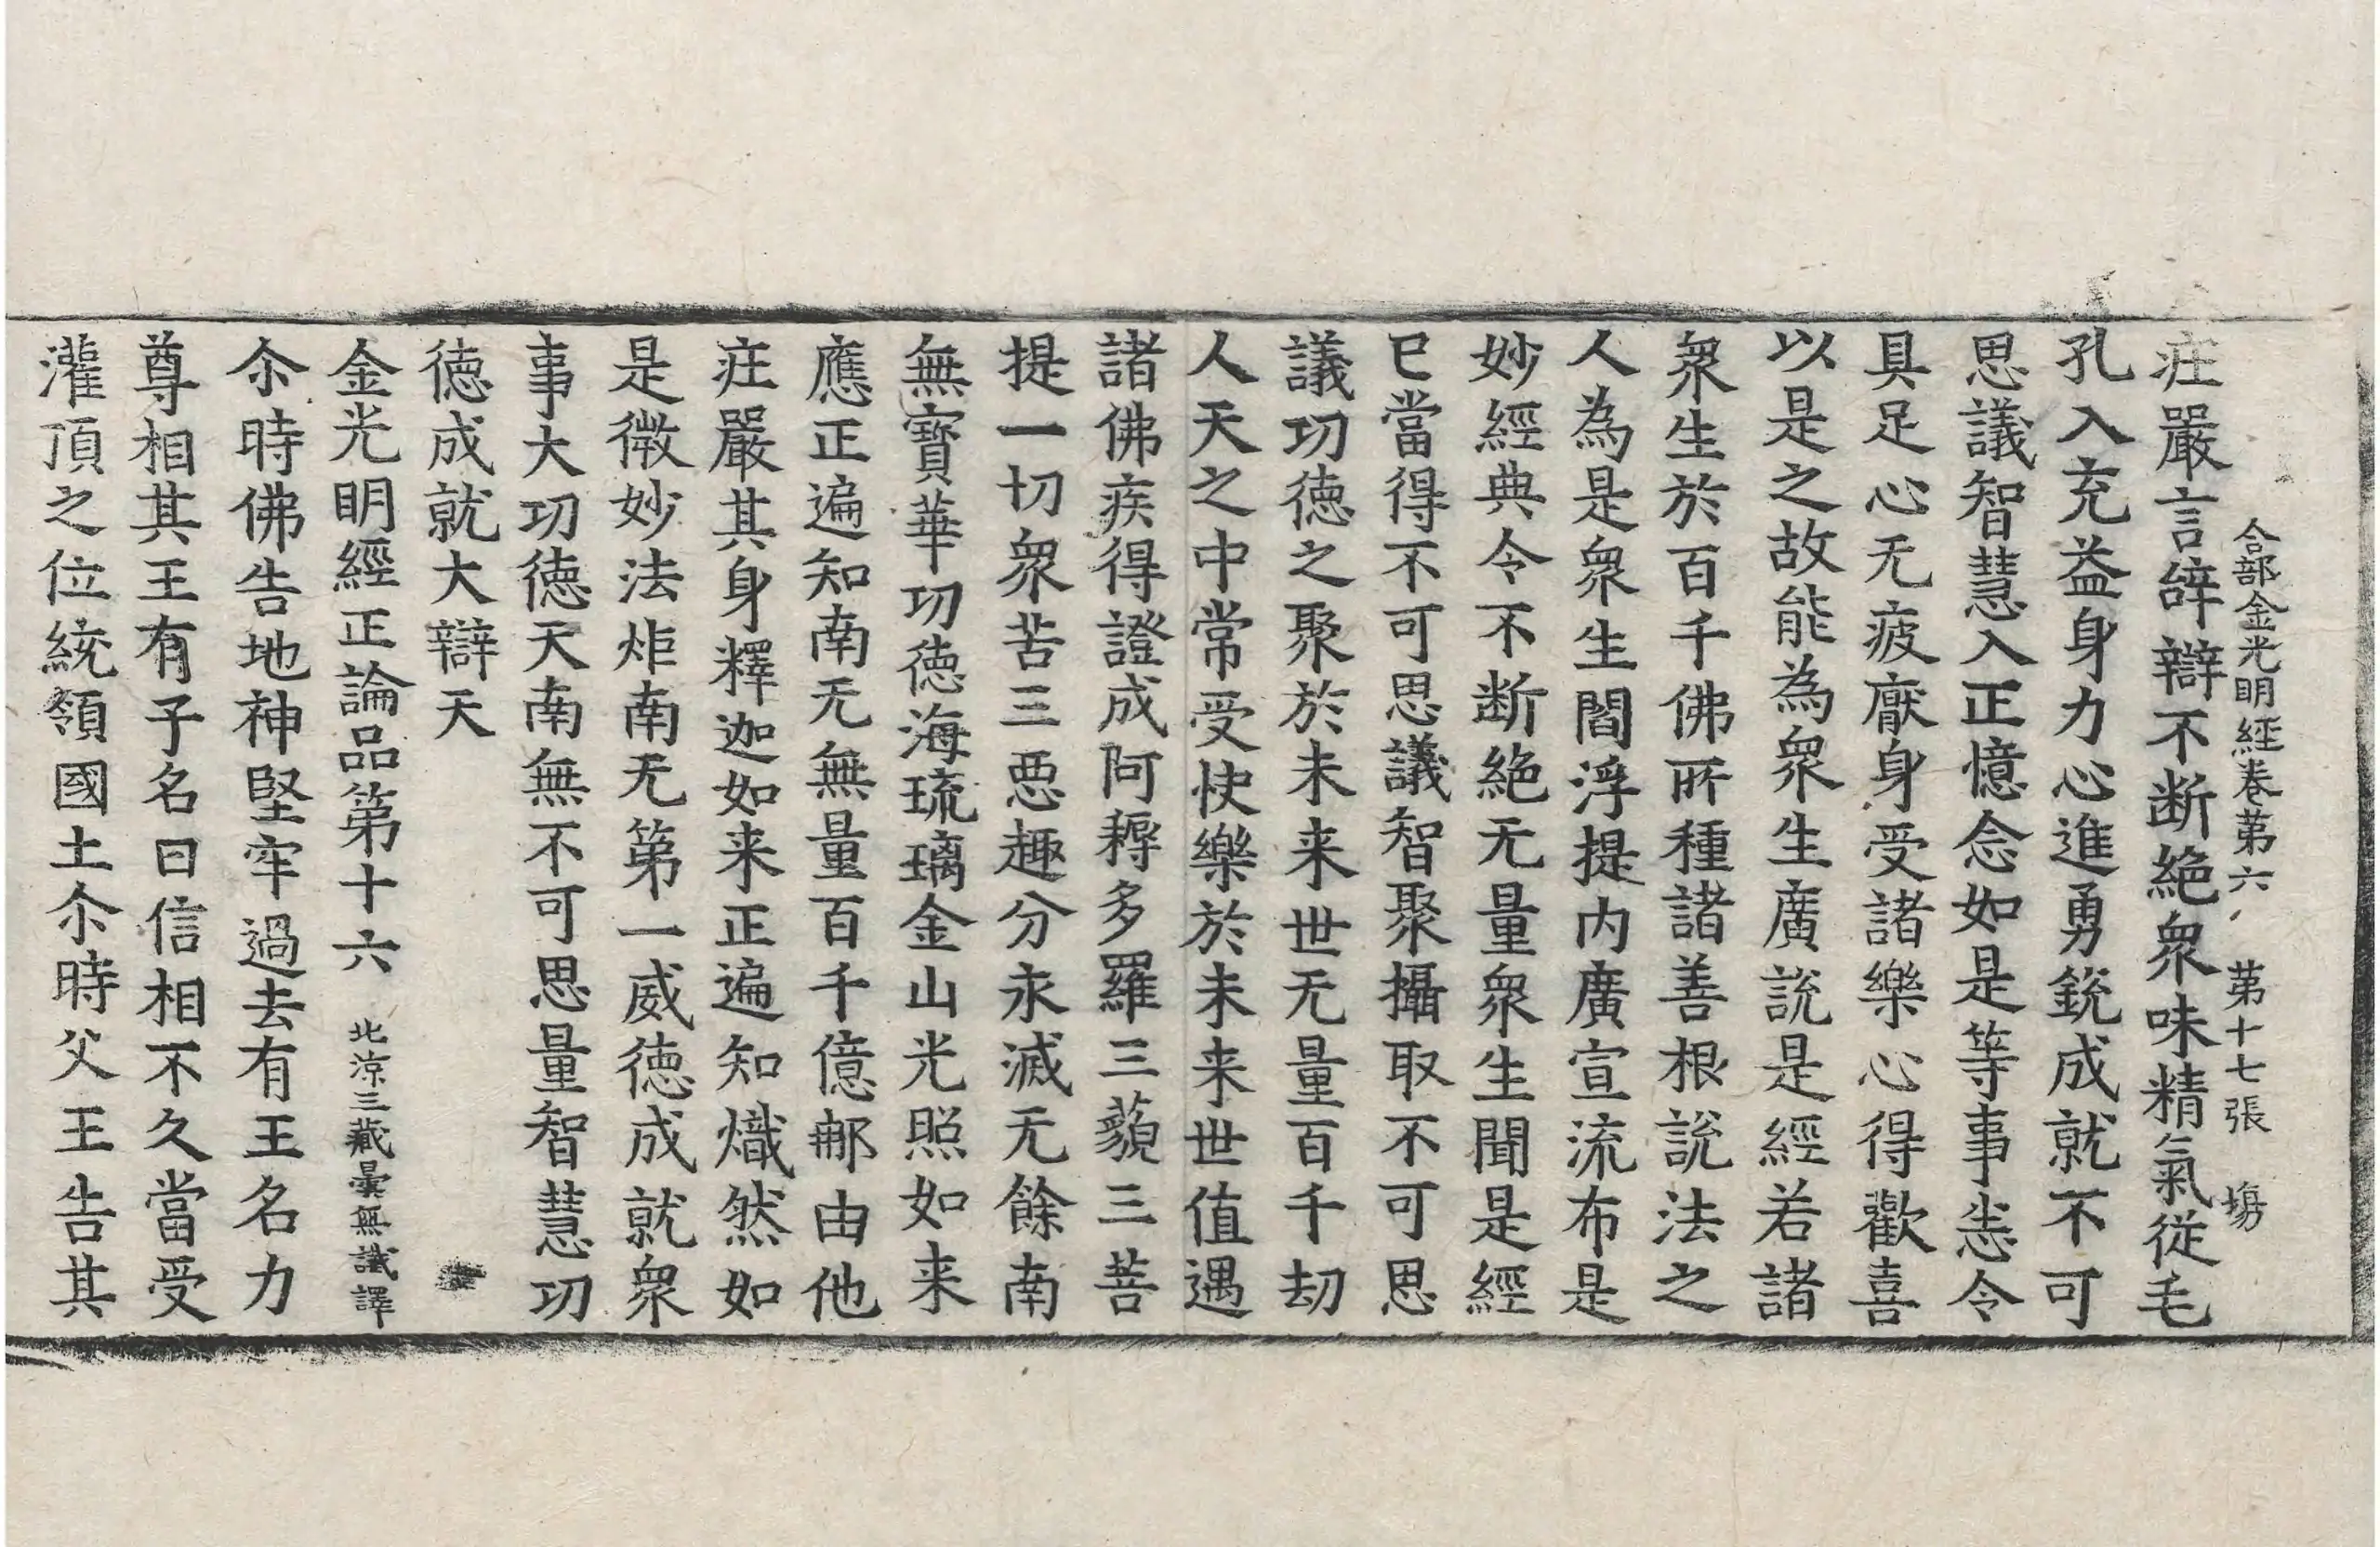 合部金光明經卷第六 第十七張 塲
疘嚴言辝辯不断絶衆味精氣從毛
孔入充益身力心進勇銳成就不可
思議智慧入正憶念如是等事恙令
具足心无疲厭身受諸樂心得歡喜
以是之故能為衆生廣說是經若諸
衆生於百千佛所種諸善根說法之
人為是衆生閻浮提内廣宣流布是
妙經典令不断絶无量衆生聞是經
已當得不可思議智聚攝取不可思
議功德之聚於未来世无量百千劫
人天之中常受快樂於未来世值遇
諸佛疾得證成阿耨多羅三藐三菩
提一切衆苦三惡趣分永滅无餘南
無寶華功德海琉璃金山光照如来
應正遍知南无無量百千億𨚗由他
疘嚴其身釋迦如来正遍知熾然如
是微妙法炬南无第一威德成就衆
事大功德天南無不可思量智慧功
德成就大辯天
金光明經正論品第十六 北涼三藏曇無讖譯
尒時佛告地神堅牢過去有王名力
尊相其王有子名曰信相不久當受
灌頂之位統領國土尒時父王告其